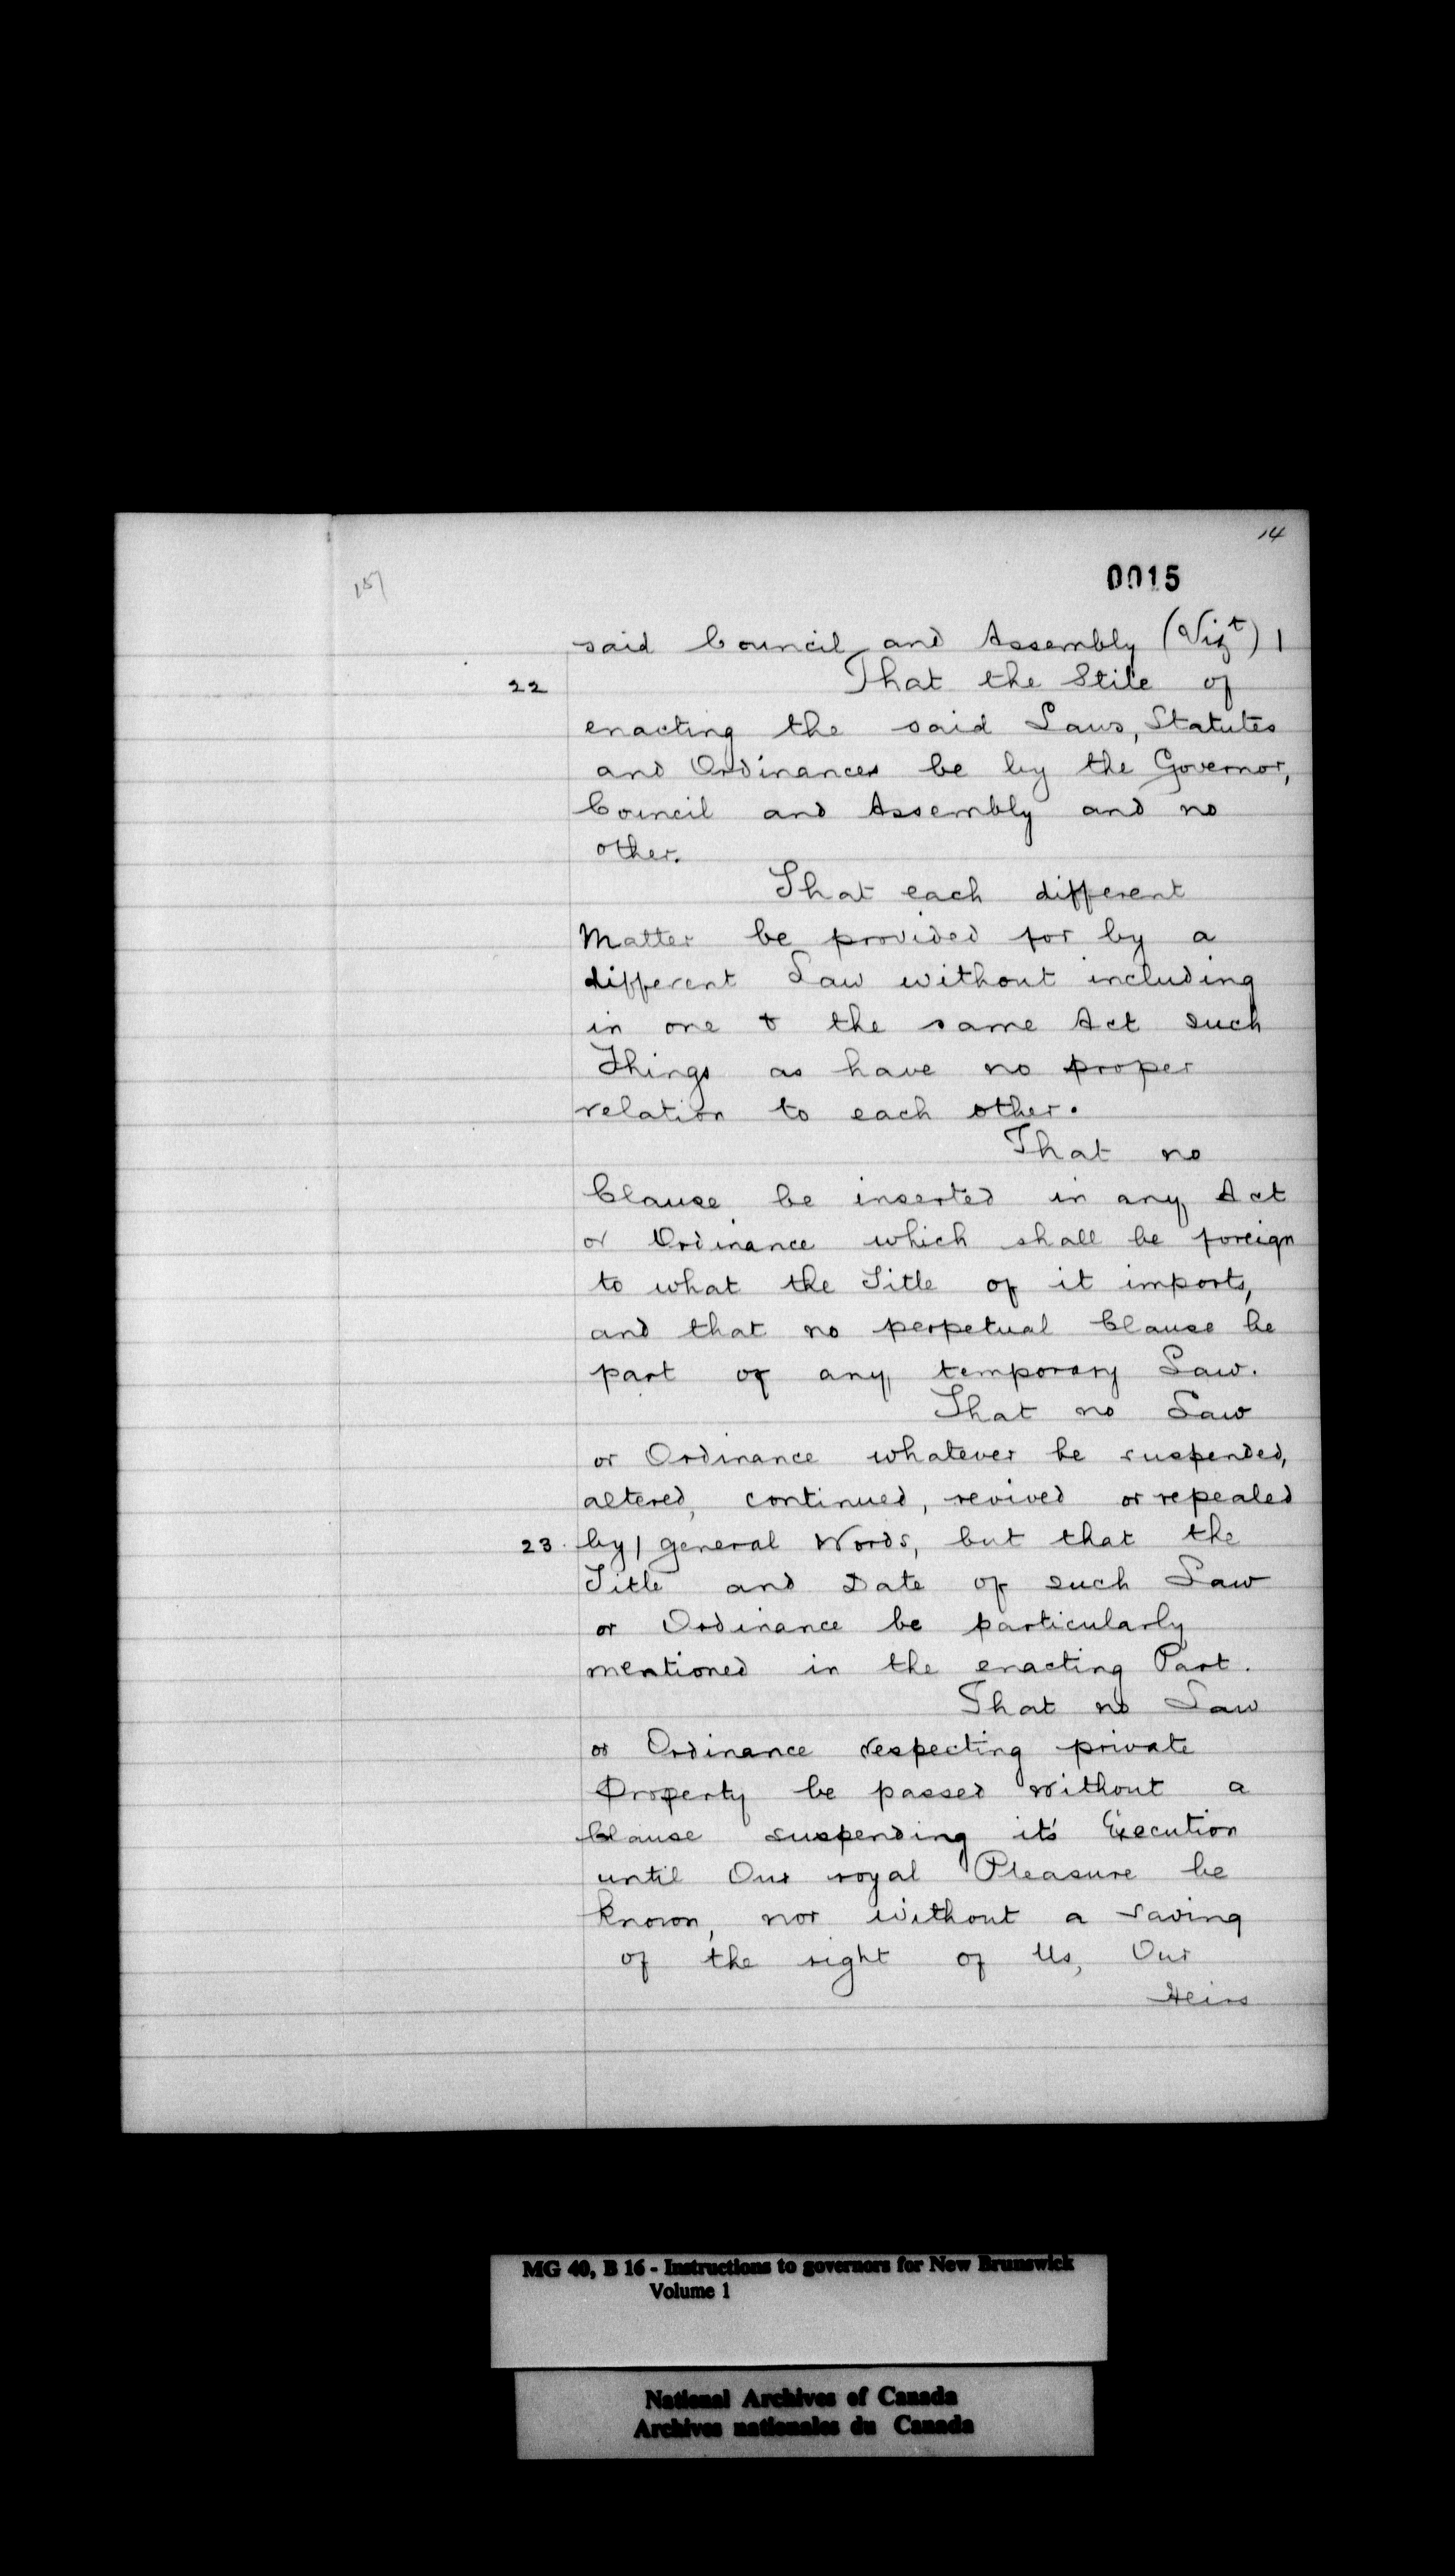 14
0015
157
said Council and Assembly (Vizt) |
22 That the Stile of
enacting the said Laws, Statutes
and Ordinances be by the Governor,
Council and Assembly and no
other.
That each different
Matter be provided for by a
different Law without including
in one & the same Act such
Things as have no proper
relation to each other.
That no
Clause be inserted in any Act
or Ordinance which shall be foreign
to what the Title of it imports,
and that no perpetual Clause be
part of any temporary Law.
That no Law
or Ordinance whatever be suspended,
altered, continued, revived or repealed
23. by | general Words, but that the
Title and Date of such Law
or Ordinance be particularly
mentioned in the enacting Part.
That no Law
or Ordinance respecting private
Property be passed without a
Clause suspending it's Execution
until Our royal Pleasure be
known, nor without a saving
of the right of Us, Our
Heirs
MG 40, B 16 - Instructions to governors for New Brunswick
Volume 1
National Archives of Canada
Archives nationales du Canada